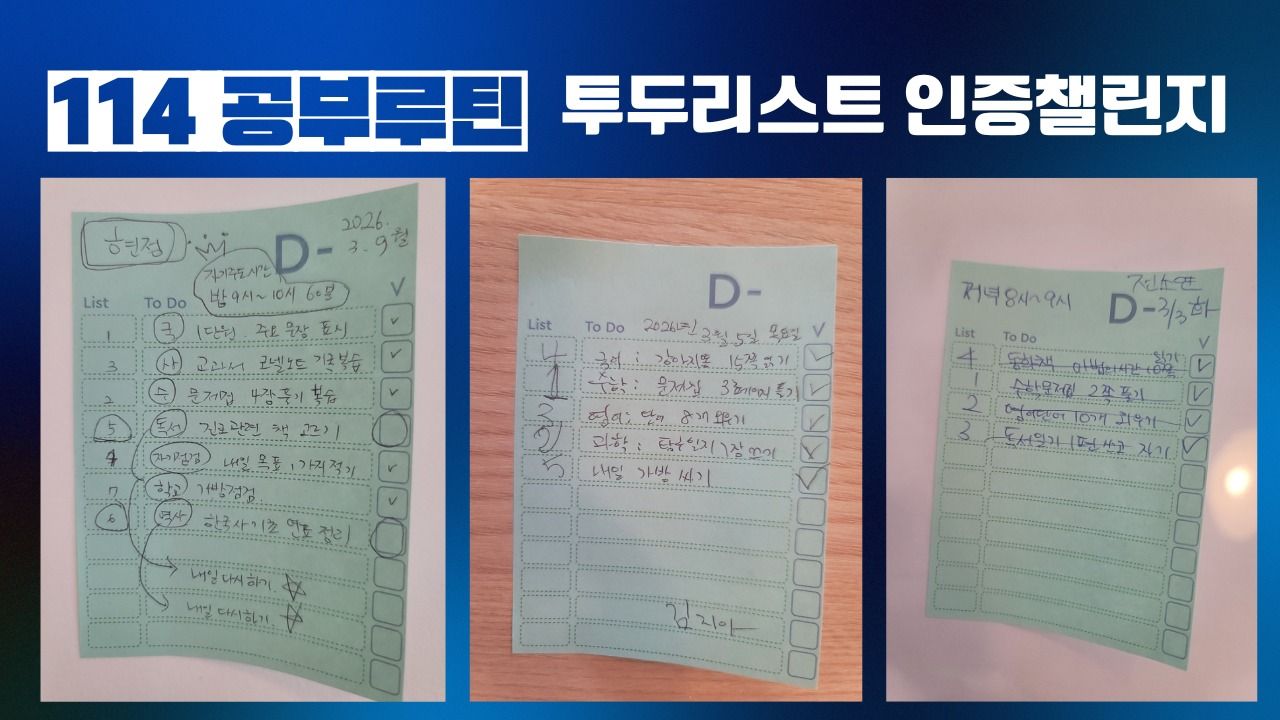 114 공부루틴 투두리스트 인증챌린지
홍현정
2026.
3. 9 월
D-
자기주도시간
밤 9시~10시 60분
List To Do V
1 국 1단원 주요 문장 표시
3 사 교과서 코넬노트 기록복습
2 수 문제집 4장 풀기 복습
5 독서 진로관련 책 고르기
4 자기점검 내일 목표 1가지 적기
7 학교 가방점검
6 역사 한국사 기초 연표 정리
내일 다시하기
내일 다시하기
D-
List To Do 2026년 3월 5일 목요일 V
4 국어 : 강아지똥 15쪽 읽기
1 수학 : 문제집 3페이지 풀기
3 영어 : 단어 8개 외우기
2 과학 : 탐구일지 1장 쓰기
5 내일 가방 싸기
김지아
저녁 8시~9시
D-3/3 화
List To Do V
4 동화책 10쪽 읽기
1 수학문제집 2장 풀기
2 영어단어 10개 외우기
3 독서일기 1편 쓰고 자기